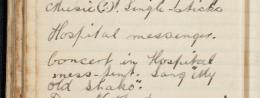 Music C.I. Single-sticks
Hospital messenger.
Concert in Hospital
mess-tent. Sang "My
old shako".